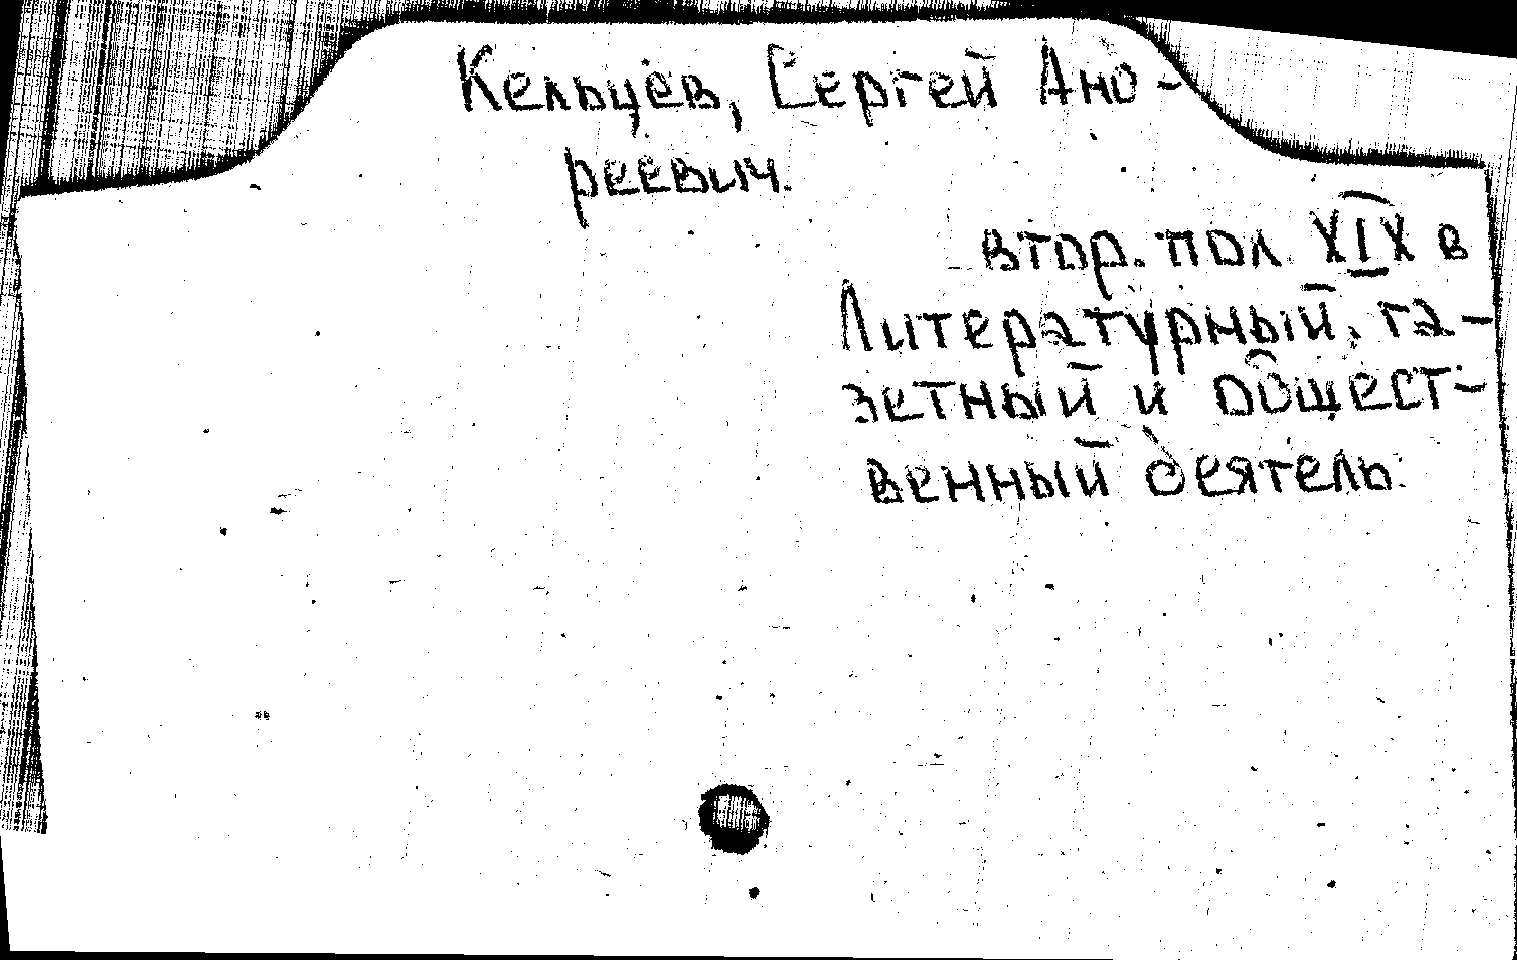 Кельцев, Сергей Анд-
реевич.
втор. пол. XIX в
Литературный, га-
зетный и общест-
венный деятель.